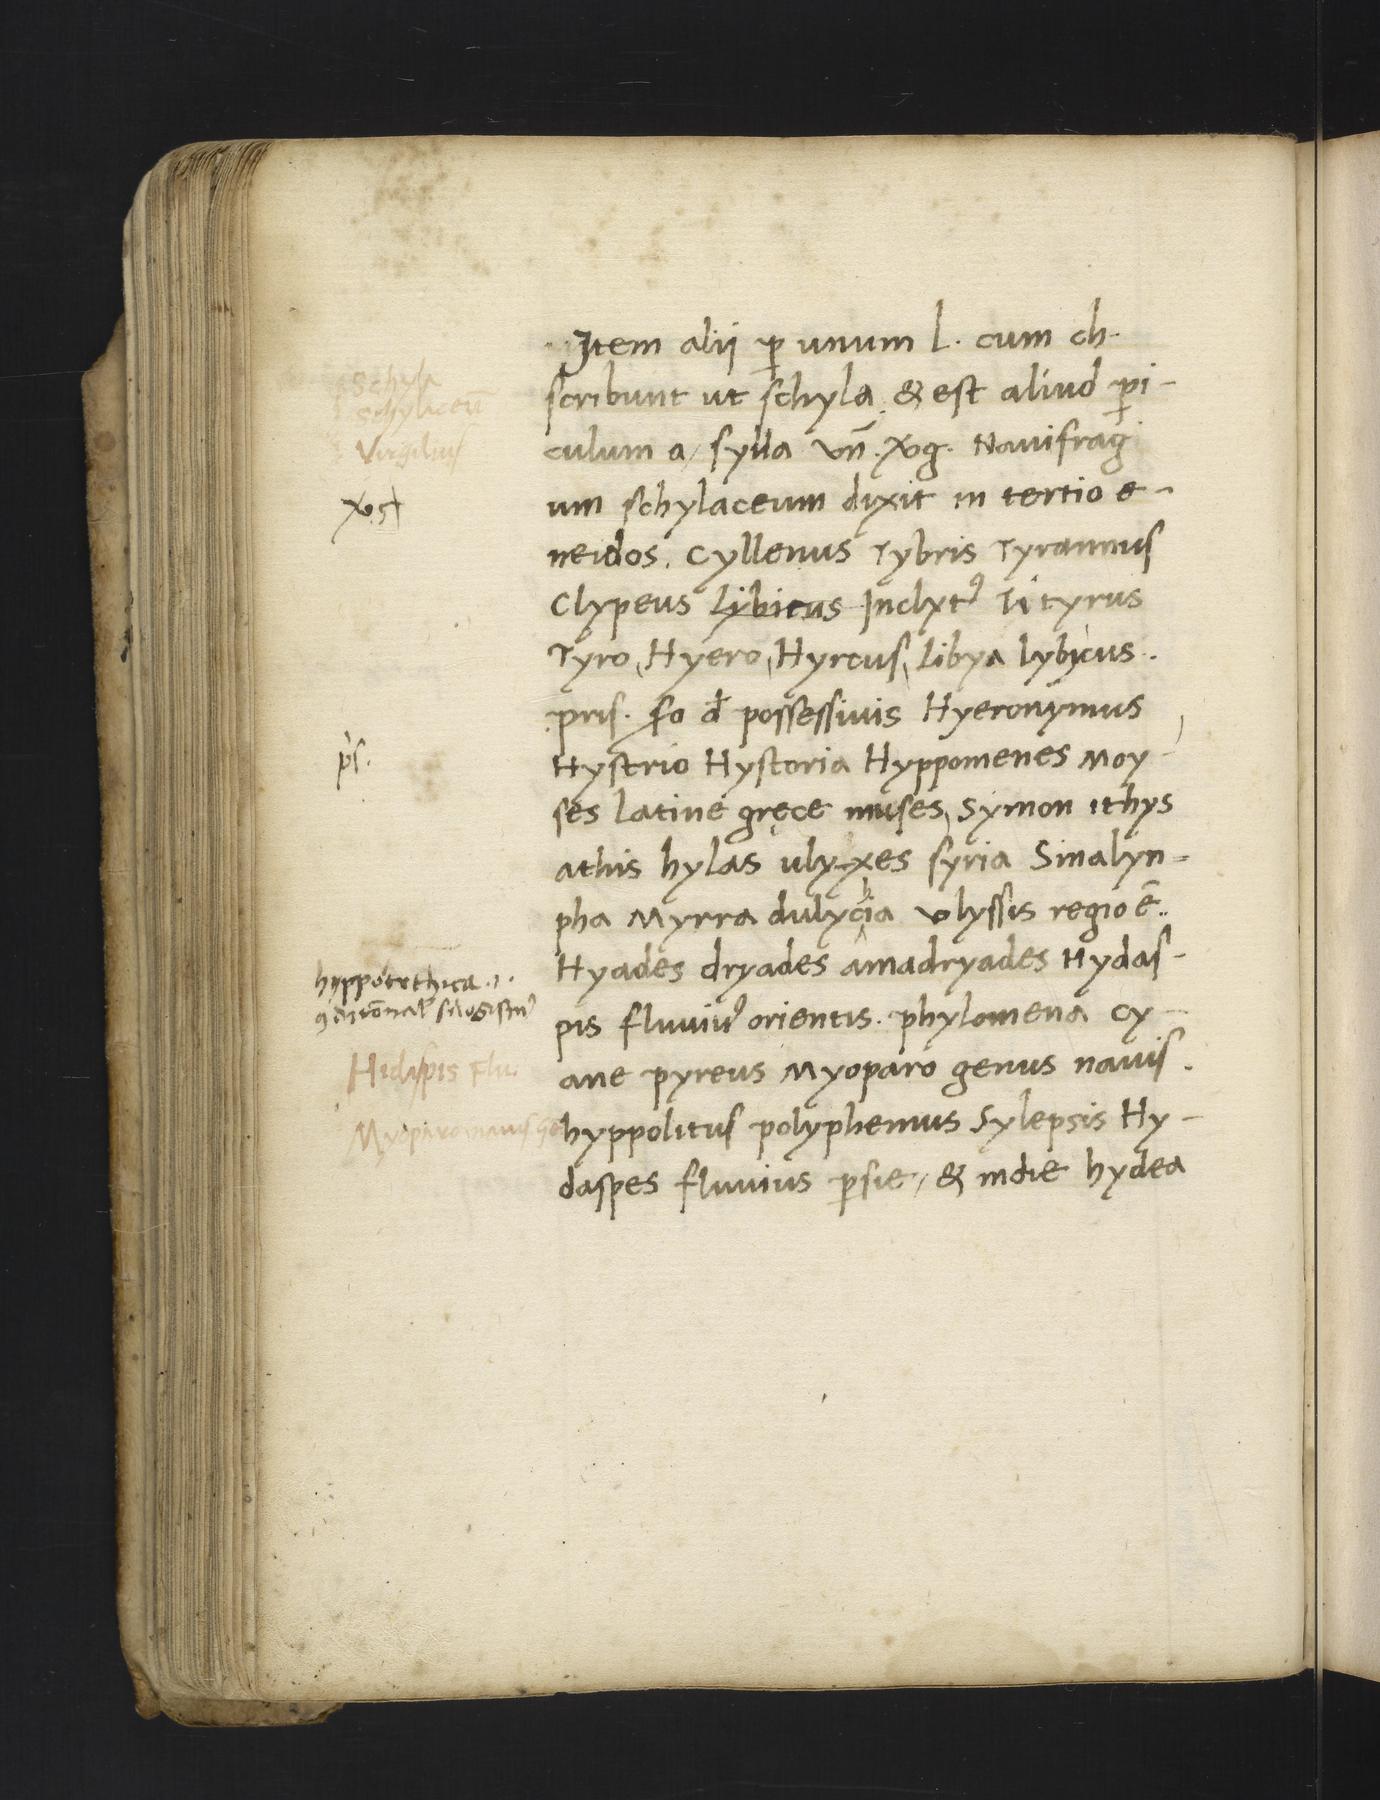 Item alii ꝑ unum l. cum ch.
scribunt ut schyla. & est aliud ꝑi-
culum a / sylla vn̄. Vg. Navifragi
um schylaceum dixit in tertio e-
neidos. Cyllenus Tybris Tyrannus
Clypeus Libicus Inclytꝰ Tityrus
Tyro, Hyero, Hyrcus, Libya lybicus.
pris. fo đ possessivis Hyeronymus
Hystrio Hystoria Hyppomenes Moy-
ses latine gręce muses, Symon ithys
athis hylas ulyxes syria Sinalyn=
pha Myrra dulychia vlyssis regio ē..
Hyades dryades amadryades Hydas-
pis fluviꝰ orientis. phylomena Cy-
ane pyreus Myoparo genus navis.
hyppolitus polyphemus Sylepsis Hy-
daspes fluvius ꝑsie, & indie hydea
Schyla
Schylaceū
Virgilius
hyppotethica .i.
Hidaspis Flu.
Myoparo navis ge